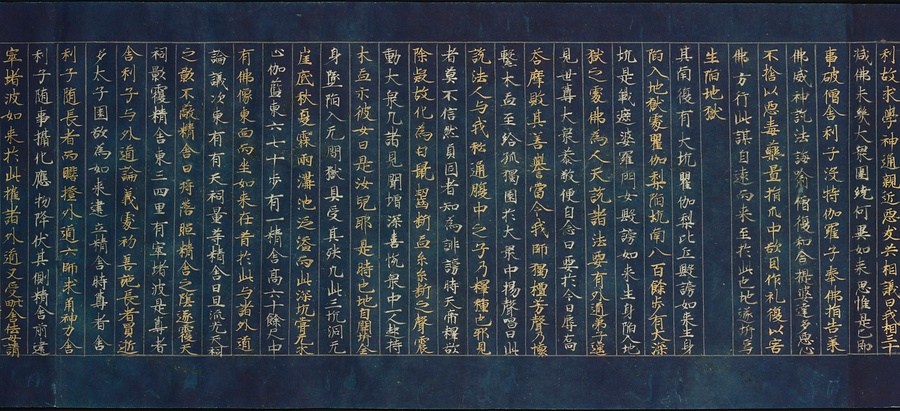 利故求學神通親近惡友共相議曰我相三十
減佛未幾大衆圍繞何異如來思惟是已即
事破僧舍利子沒特伽羅子奉佛指告承
佛威神說法誨喻僧復和合提婆達多惡心
不捨以惡毒藥置指爪中欲因作礼復以害
佛方行此謀自遠而來至於此也地遂坼焉
生陷地獄
其南復有大坑瞿伽梨苾芻毀謗如來生身
陷入地獄處瞿伽梨陷坑南八百餘步有大深
坑是戰遮婆羅門女毀謗如來生身陷入地
獄之處佛為人天說諸法要有外道弟子遙
見世尊大衆恭敬便自念曰要於今日辱喬
荅摩敗其善譽當令我師獨擅芳聲乃懷
繫木盂至給孤獨園於大衆中揚聲唱曰此
說法人与我私通腹中之子乃釋種也邪見
者莫不信然貞固者知為誹謗時天帝釋欲
除疑故化為白鼠齧斷盂系系斷之聲震
動大衆凡諸見聞增深喜悅衆中一人起持
木盂示彼女曰是汝兒耶是時也地自開坼全
身墜陷入无間獄具受其殃凡此三坑洞无
崖底秋夏霖雨溝池泛溢而此深坑嘗无水
止伽藍東六七十步有一精舍高六十餘尺中
有佛像東面而坐如來在昔於此与諸外道
論議次東有有天祠量等精舍日旦流光天祠
之影不蔽精舍日將落照精舍之陰遂覆天
祠影覆精舍東三四里有窣堵波是尊者
舍利子与外道論議處初善施長者買逝
多太子園欲為如來建立精舍時尊者舍
利子隨長者而瞻揆外道六師求角神力舍
利子隨事攝化應物降伏其側精舍前建
窣堵波如來於此摧諸外道又受毗舍佉母請